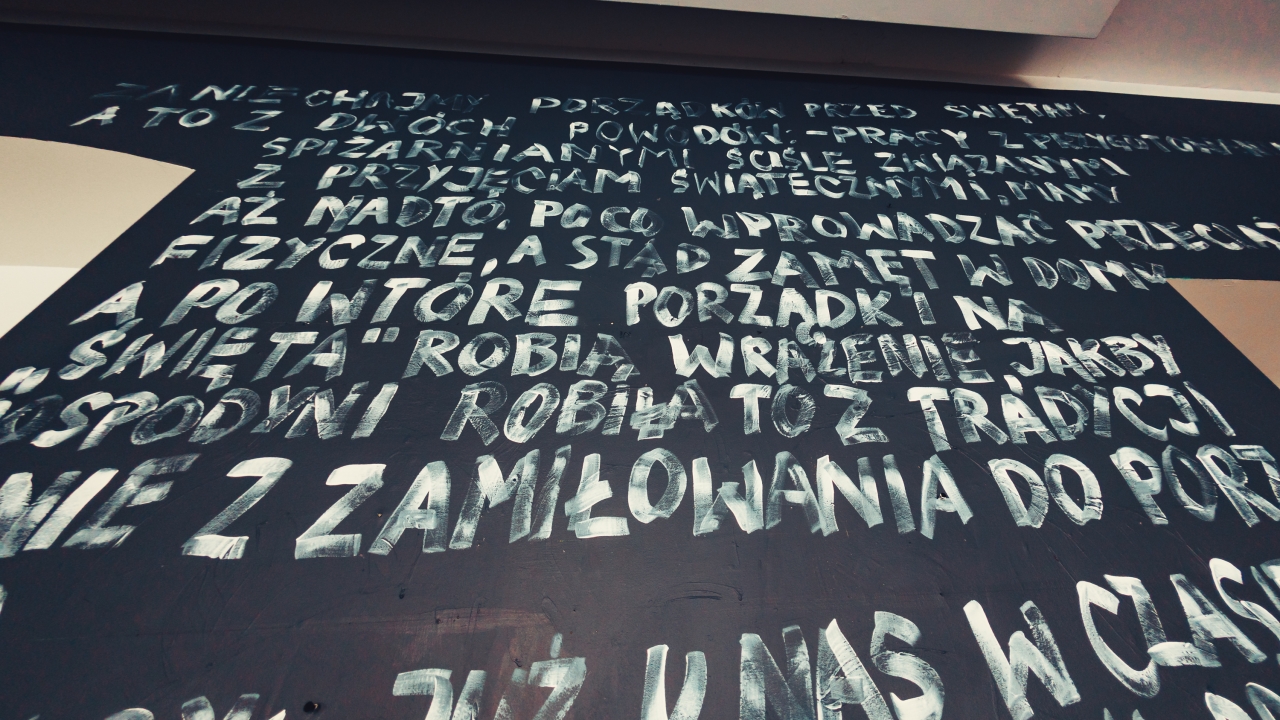 ZANIECHAJMY PORZĄDKÓW PRZED ŚWIĘTAMI,
A TO Z DWÓCH POWODÓW: - PRACY Z PRZYGOTOWANIAMI
SPIŻARNIANYMI ŚCIŚLE ZWIĄZANYMI
Z PRZYJĘCIAM ŚWIĄTECZNYMI, MAMY
AŻ NADTO, PO CO WPROWADZAĆ PRZECIĄŻ
FIZYCZNE, A STĄD ZAMĘT W DOMU
A PO WTÓRE PORZĄDKI NA
„ŚWIĘTA" ROBIĄ WRAŻENIE JAKBY
OSPODYNI ROBIŁA TO Z TRADYCJI
NIE Z ZAMIŁOWANIA DO PORZ
JUŻ U NAS W CZAS